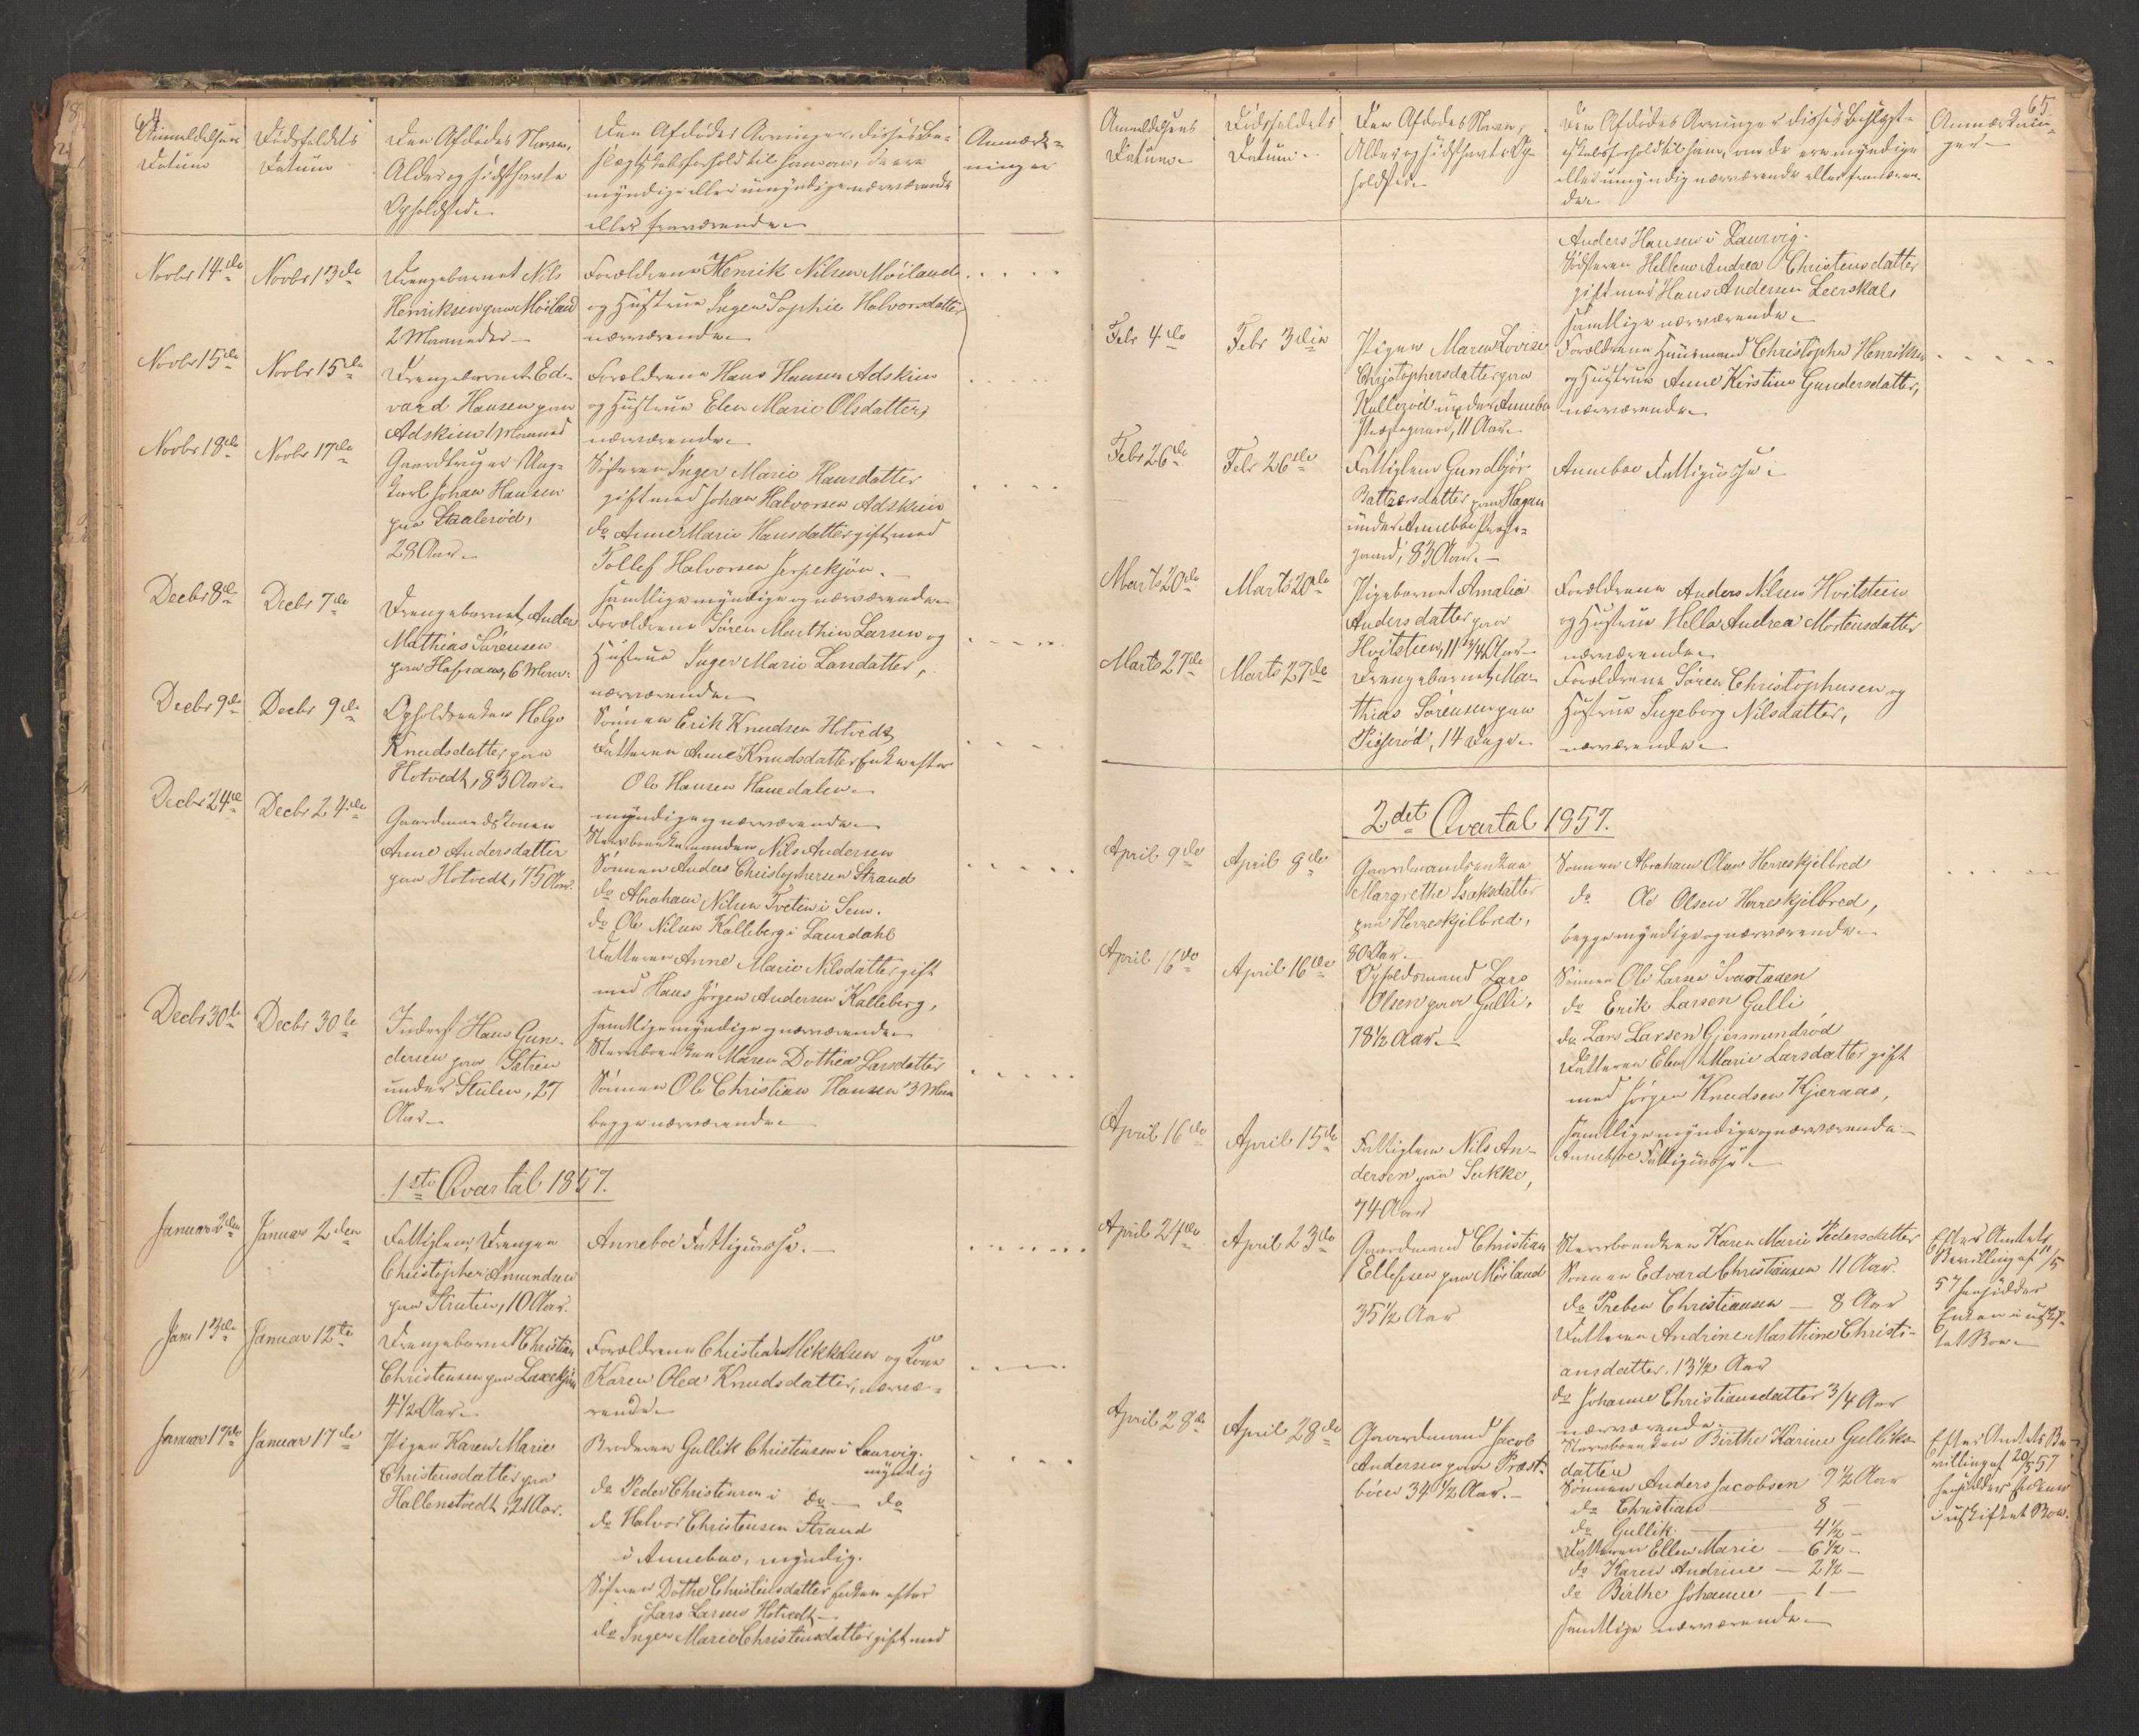 64
Anmeldelsens
Datum
Dödsfaldets
Datum
Den Afdödes Navn,
Alder og sidst havte
Opholdsted.
Den Afdödes Arvinger, disses Be-
slægtskabsforhold til ham, om de ere
myndige eller umyndige nærværende
eller fraværende.
Anmærk-
ninger
Novbr 14de
Novbr 13de
Drengebarnet Nils
Henriksen paa Möiland
2 Maaneder
Forældrene Henrik Nilsen Möiland
og Hustrue Inger Sophie Halvorsdatter
nærværende.
Novbr 15de
Novbr 15de
Drengebarnet Ed-
vard Hansen paa
Adskim 1 Maaned
Forældrene Hans Hansen Adskim
og Hustrue Elen Marie Olsdatter,
nærværende.
Novbr 18de
Novbr 17de
Gaardbruger Ung-
karl Johan Hansen
paa Staaleröd,
28 Aar.
Söstrene Inger Marie Hansdatter
gift med Johan Halvorsen Adskim
do Anne Marie Hansdatter gift med
Tollef Halvorsen Jerpekjön.
samtlige myndige og nærværende.
Decbr 8de
Decbr 7de
Drengebarnet Anders
Mathias Sörensen
paa Hafsaas, 6 Maan.
Forældrene Sören Marthin Larsen og
Hustrue Inger Marie Larsdatter,
nærværende.
Decbr 9de
Decbr 9de
Opholdsenken Helge
Knudsdatter paa
Hotvedt, 83 Aar.
Sönnen Erik Knudsen Hotvedt
Datteren Anne Knudsdatter Enke efter
Ole Hansen Hanedalen.
myndige og nærværende.
Decbr 24de
Decbr 24de
Gaardmandskonen
Anne Andersdatter
paa Hotvedt, 75 Aar.
Stervboenkemanden Nils Andersen
Sönnen Anders Christophersen Strand
do Abraham Nilsen Tveten i Sem.
do Ole Nilsen Kalleberg i Laurdahl
Datteren Anne Marie Nilsdatter gift
med Hans Jörgen Andersen Kalleberg,
samtlige myndige og nærværende.
Decbr 30te
Decbr 30te
Inderst Hans Gun-
dersen paa Sætren
under Stulen, 27
Aar.
Stervboenken Maren Dothea Larsdatter
Sönnen Ole Christian Hansen 3 Maan
begge nærværende.
1ste Qvartal 1857.
Januar 2den
Januar 2den
Fattiglem, Drengen
Christopher Amundsen
paa Struten, 10 Aar.
Anneboe Fattigkasse.
Jam 13de
Januar 12te
Drengebarnet Christian
Christensen paa Laxekjön
4 1/2 Aar.
Forældrene Christian Mikkelsen og Kone
Karen Olea Knudsdatter, nærvæ-
rende.
Januar 17de
Januar 17de
Pigen Karen Marie
Christensdatter paa
Hallenstvedt, 21 Aar.
Broderen Gullik Christensen i Laurvig.
myndig
do Peder Christensen i do — do
do Halvor Christensen Strand
i Anneboe, myndig.
Söstren Dothe Christensdatter Enken efter
Lars Larsen Hotvedt
do Inger Marie Christensdatter gift med
65
Anmeldelsens
Datum
Dödsfaldets
Datum
Den Afdödes Navn,
Alder og sidsthavte Op-
holdsted.
Den Afdödes Arvinger disses Beslægt-
skabsforhold til ham, om de ere myndige
eller umyndig nærværende eller fraværen-
de.
Anmærknin-
ger
Anders Hansen i Laurvig.
Södsteren Hellene Andrea Christensdatter
gift med Hans Andersen Leerskal,
samtlige nærværende.
Febr 4de
Febr 3die
Pigen Maren Lovise
Christophersdatter paa
Kulleröd under Anneboe
Præstegaard, 11 Aar.
Forældrene Huusmand Christopher Henriksen
og Hustrue Anne Kirstine Gundersdatter,
nærværende.
Febr 26de
Febr 26de
Fattiglem Gundbjör
Battzersdatter paa Hagen
under Anneboe Præste-
gaard, 83 Aar.
Anneboe Fattigkasse.
Marts 20de
Marts 20de
Pigebarnet Amalia
Andersdatter paa
Hvitsteen, 11 3/4 Aar
Forældrene Anders Nilsen Hvitsteen
og Hustrue Hella Andrea Mortensdatter
nærværende.
Marts 27de
Marts 27de
Drengebarnet Ma-
thias Sörensen paa
Pisseröd, 14 Dage.
Forældrene Sören Christophersen og
Hustrue Ingeborg Nilsdatter,
nærværende.
2det Qvartal 1857.
April 9de
April 8de
Gaardmandsenken
Margrethe Isaksdatter
paa Herreskjelbred,
80 Aar.
Sönnen Abraham Olsen Herreskjelbred
do Ole Olsen Herreskjelbred,
begge myndige og nærværende.
April 16de
April 16de
Opholdsmand Lars
Olsen paa Gulli,
78 1/2 Aar.
Sönnen Ole Larsen Svartaaen
do Erik Larsen Gulli
do Lars Larsen Gjermundröd
Datteren Elen Marie Larsdatter gift
med Jörgen Knudsen Kjæraas,
samtlige myndige og nærværende.
April 16de
April 15de
Fattiglem Nils An-
dersen paa Sukke,
74 Aar
Anneboe Fattigkasse.
April 24de
April 23de
Gaardmand Christian
Ellefsen paa Möiland
35 1/2 Aar
Stervboenken Karen Marie Pedersdatter
Sönnen Edvard Christiansen 11 Aar
do Preben Christiansen — 8 Aar
Datteren Andrine Marthine Christi-
ansdatter. 13 1/2 Aar
do Johanne Christiansdatter 3/4 Aar
nærværende.
Efter Amtets
Bevilling af 11/5
57 hensidder
Enken i uskif-
tet Boe.
April 28de
April 28de
Gaardmand Jacob
Andersen paa Præst-
böen 34 1/2 Aar.
Stervboenken Birthe Karine Gulliks-
datter
Sönnen Anders Jacobsen 9 1/2 Aar
do Christian — 8 —
do Gullik — 4 1/2 —
Datteren Ellen Marie — 6 1/2 —
do Karen Andrine — 2 1/2 —
do Birthe Johanne — 1 —
samtlige nærværende.
Efter Amtets Be-
villing af 20/5 57
hensidder Enken
i uskiftet Boe.